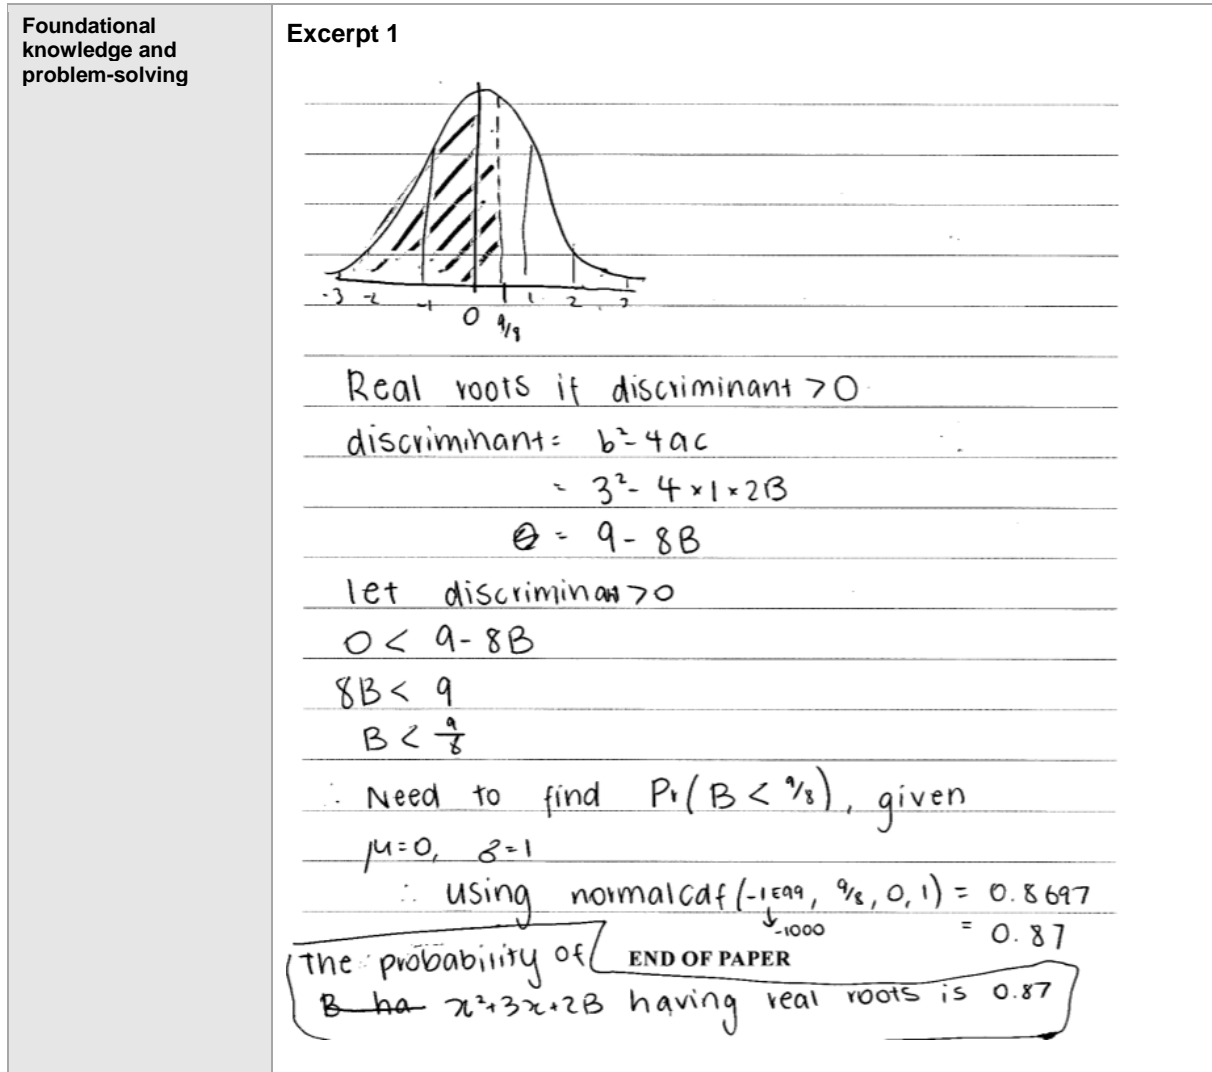 Foundational
knowledge and
problem-solving
Excerpt 1
-3 -2 -1 0 9/8 1 2 3
Real roots if discriminant >0
discriminant = b²-4ac
= 3²- 4×1×2B
= 9 - 8B
let discriminant >0
0 < 9 - 8B
8B < 9
B < 9/8
∴ Need to find Pr(B < 9/8), given
μ=0, σ=1
∴ using normalcdf(-1E99, 9/8, 0, 1) = 0.8697
↓-1000 = 0.87
The probability of
END OF PAPER
B ha x²+3x+2B having real roots is 0.87